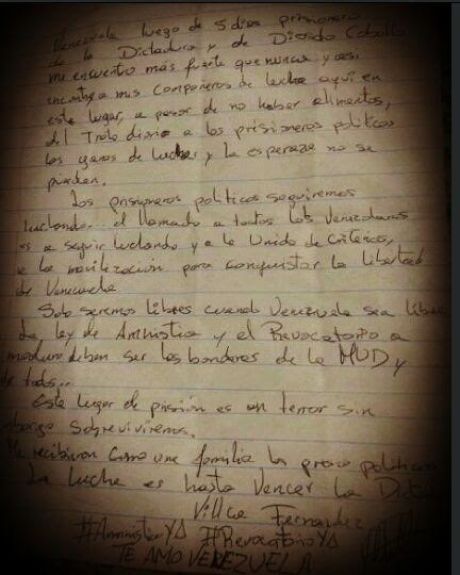 Venezuela luego de 5 dias prisionero
de la Dictadura y de Diosdo Cabello
me encuentro más fuerte que nunca y asi
encontre a mis compañeros de lucha aqui en
este lugar, a pesar de no haber alimentos,
del Trato diario a los prisioneros politicos
las ganas de luchar y la esperanza no se
pierden.
Los prisioneros politicos seguiremos
luchando... el llamado a todos los Venezolanos
es a seguir luchando y a la Unida de Criterios,
a la movilización para conquistar la libertad
de Venezuela
Solo seremos libres cuando Venezuela sea libre
la ley de Amnistia y el Revocatorio a
maduro deben ser las banderas de la MUD y
de todos...
Este lugar de prisión es un terror sin
embargo sobreviviremos.
Me recibieron como una familia los presos politicos
La lucha es hasta Vencer la
Villca Fernandez
#AmnistiaYA #RevocatorioYA
TE AMO VENEZUELA